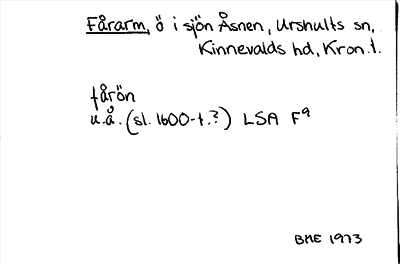 Fårarm, ö i sjön Åsnen, Urshults sn,
Kinnevalds hd, Kron. l.
fårön
u.å. (sl. 1600-t.?) LSA F9
BME 1973